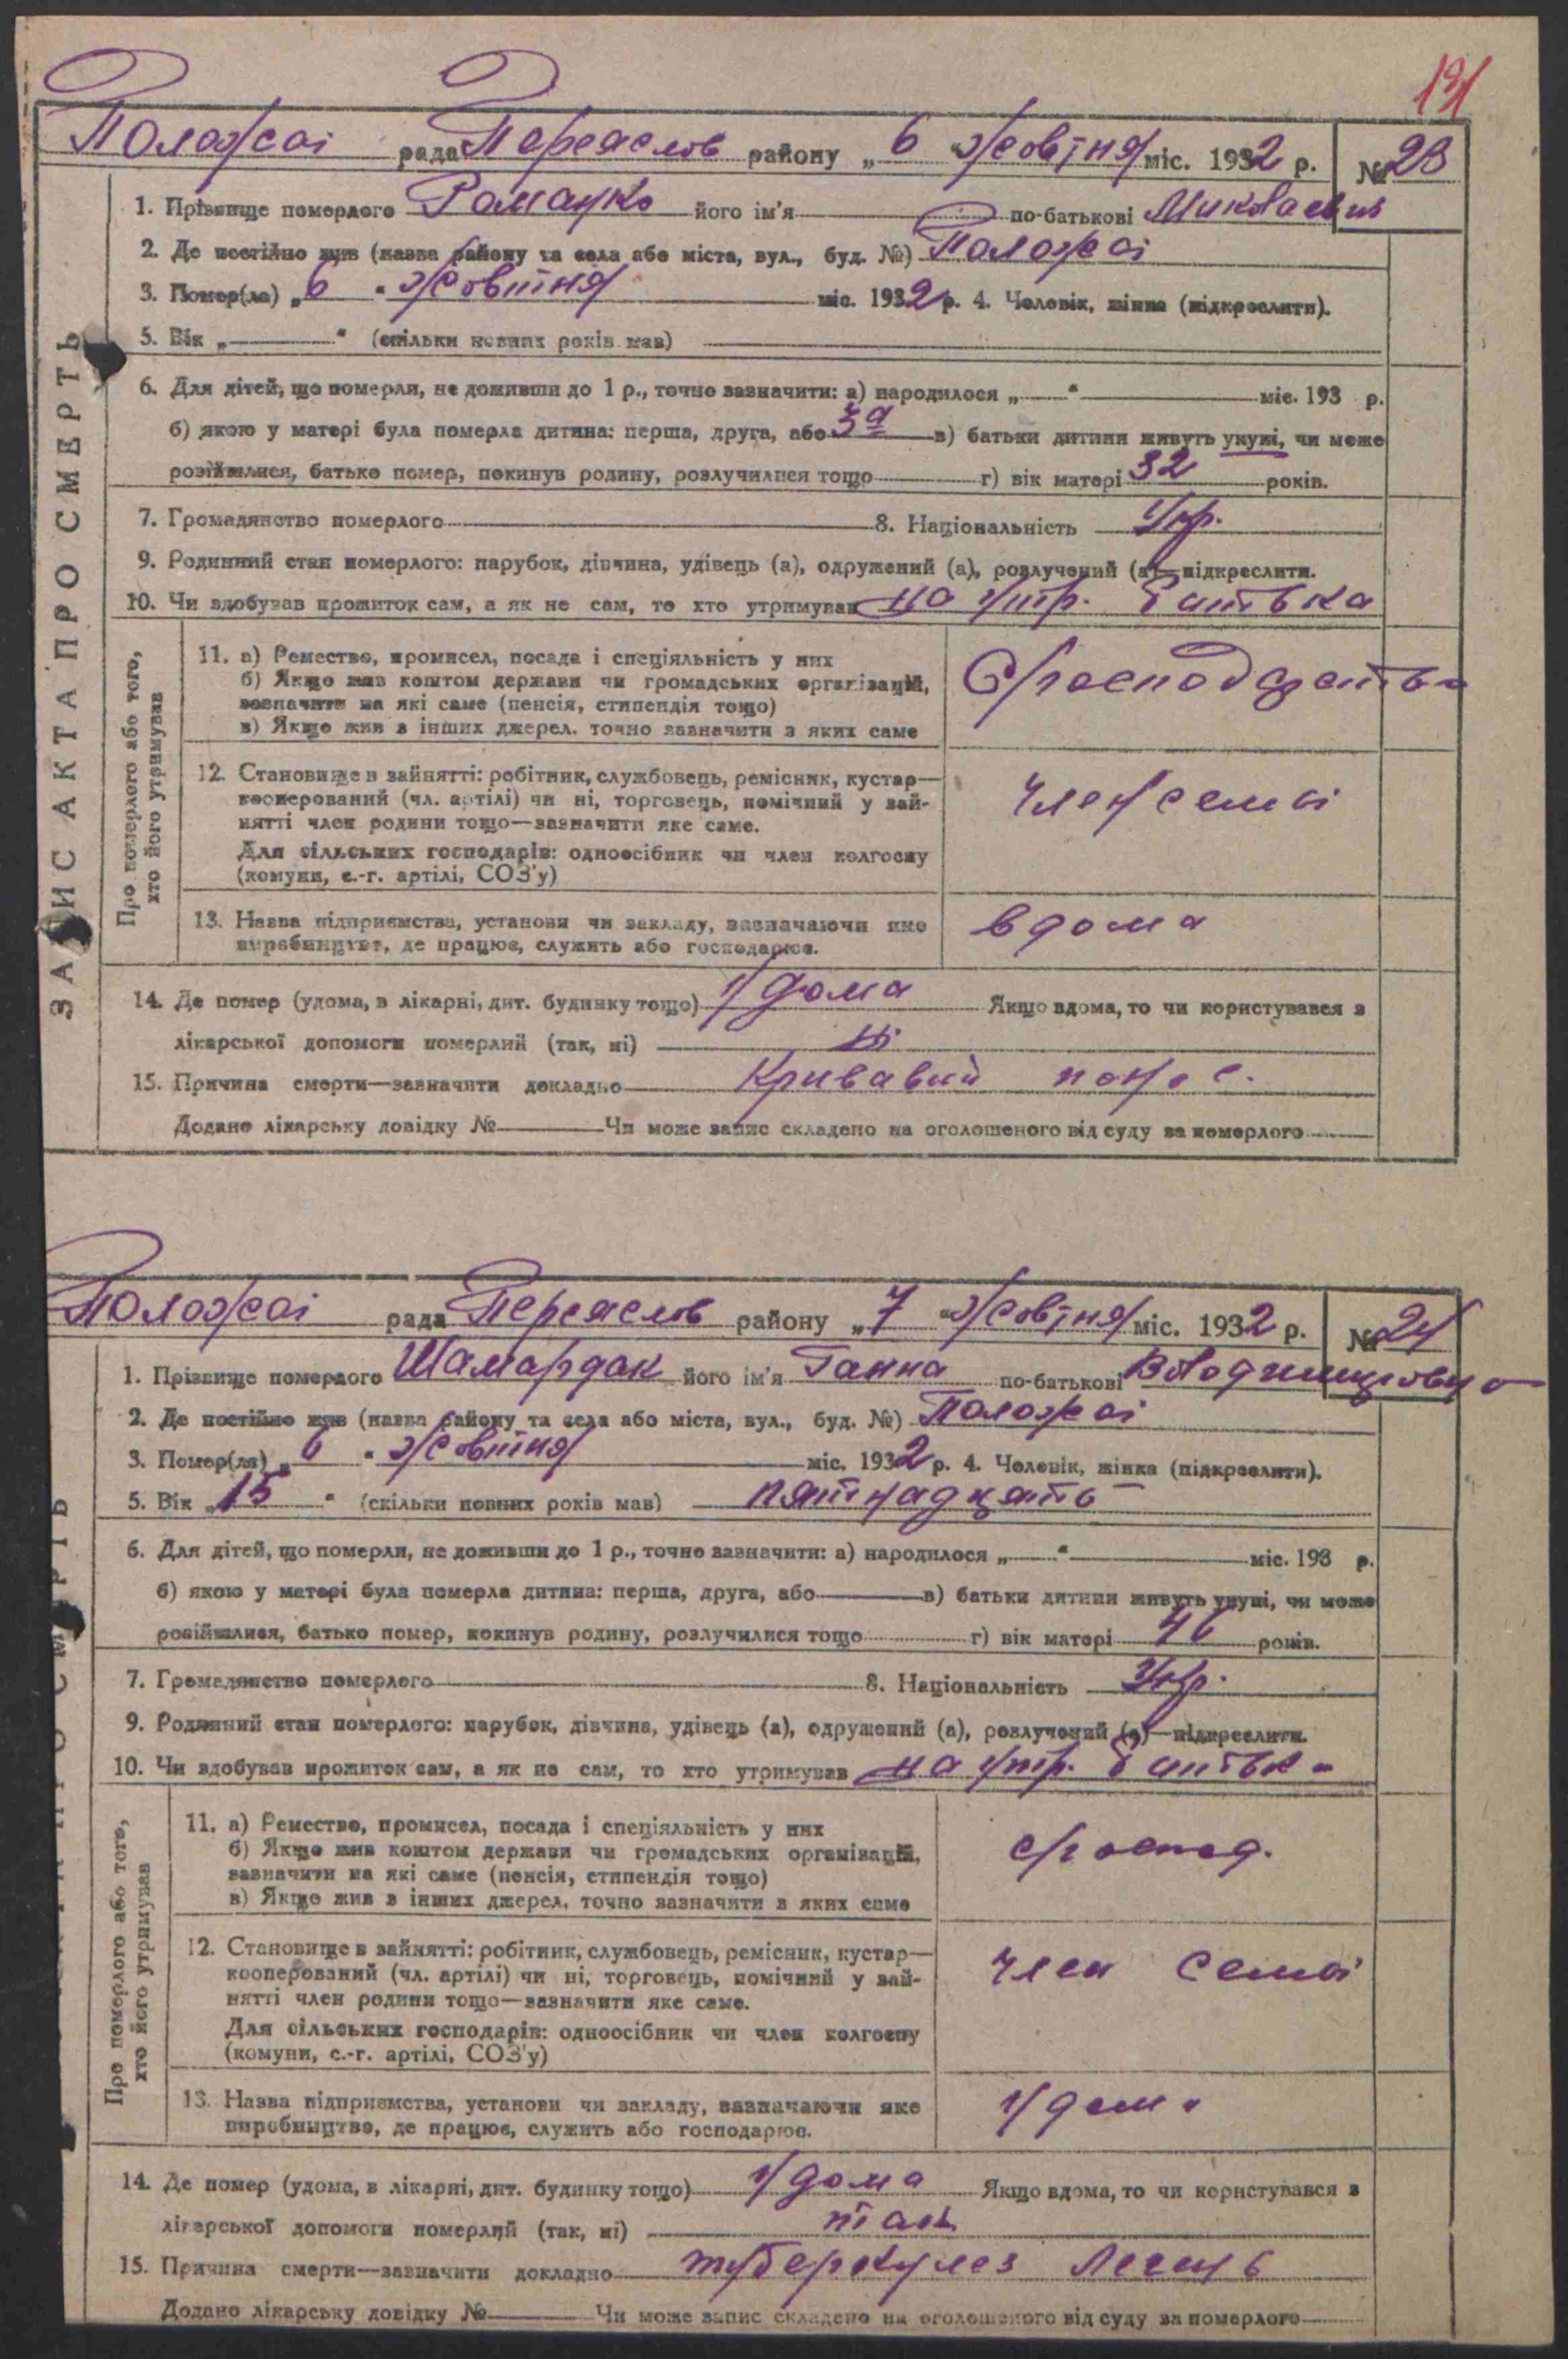 191
Положаі рада Переяслов району „6 “ жовтня міс. 1932 р. № 23
1. Прізвище померлого Романко його ім'я по-батькові Миколаевич
2. Де постійно жив (назва району та села або міста, вул., буд. №) Положаі
3. Помер(ла) „6 “ жовтня міс. 1932 р. 4. Чоловік, жінка (підкреслити).
5. Вік „ “ (скільки повних років мав)
6. Для дітей, що померли, не доживши до 1 р., точно зазначити: а) народилося „ “ міс. 193 р.
б) якою у матері була померла дитина: перша, друга, або 3а в) батьки дитини живуть укупі, чи може
розійшлися, батько помер, покинув родину, розлучилися тощо г) вік матері 32 років.
7. Громадянство померлого 8. Національність Укр.
9. Родинний стан померлого: парубок, дівчина, удівець (а), одружений (а), розлучений (а)—підкреслити.
10. Чи здобував прожиток сам, а як не сам, то хто утримував на утр. батька
ЗАПИС АКТА ПРО СМЕРТЬ
Про померлого або того, хто його утримував
11. а) Ремество, промисел, посада і спеціяльність у них
б) Якщо жив коштом держави чи громадських організацій,
зазначити на які саме (пенсія, стипендія тощо)
в) Якщо жив з інших джерел, точно зазначити з яких саме
12. Становище в зайнятті: робітник, службовець, ремісник, кустар—
кооперований (чл. артілі) чи ні, торговець, помічний у зай-
нятті член родини тощо—зазначити яке саме.
Для сільських господарів: одноосібник чи член колгоспу
(комуни, с.-г. артілі, СОЗ'у)
член семьі
13. Назва підприємства, установи чи закладу, зазначаючи яке
виробництво, де працює, служить або господарює.
вдома
14. Де помер (удома, в лікарні, дит. будинку тощо) удома Якщо вдома, то чи користувався з
лікарської допомоги померлий (так, ні) ні
15. Причина смерти—зазначити докладно Кривавий понос.
Додано лікарську довідку № Чи може запис складено на оголошеного від суду за померлого
Положаі рада Переяслов району „7 “ жовтня міс. 1932 р. № 24
1. Прізвище померлого Шамардак його ім'я Ганна по-батькові Володимировна
2. Де постійно жив (назва району та села або міста, вул., буд. №) Положаі
3. Помер(ла) „6 “ жовтня міс. 1932 р. 4. Чоловік, жінка (підкреслити).
5. Вік „15 “ (скільки повних років мав) пятнадцять
6. Для дітей, що померли, не доживши до 1 р., точно зазначити: а) народилося „ “ міс. 193 р.
б) якою у матері була померла дитина: перша, друга, або в) батьки дитини живуть укупі, чи може
розійшлися, батько помер, покинув родину, розлучилися тощо г) вік матері 46 років.
7. Громадянство померлого 8. Національність Укр.
9. Родинний стан померлого: парубок, дівчина, удівець (а), одружений (а), розлучений (а)—підкреслити.
10. Чи здобував прожиток сам, а як не сам, то хто утримував на утр. батька
Про померлого або того, хто його утримував
11. а) Ремество, промисел, посада і спеціяльність у них
б) Якщо жив коштом держави чи громадських організацій,
зазначити на які саме (пенсія, стипендія тощо)
в) Якщо жив з інших джерел, точно зазначити з яких саме
12. Становище в зайнятті: робітник, службовець, ремісник, кустар—
кооперований (чл. артілі) чи ні, торговець, помічний у зай-
нятті член родини тощо—зазначити яке саме.
Для сільських господарів: одноосібник чи член колгоспу
(комуни, с.-г. артілі, СОЗ'у)
член семьі
13. Назва підприємства, установи чи закладу, зазначаючи яке
виробництво, де працює, служить або господарює.
удома
14. Де помер (удома, в лікарні, дит. будинку тощо) удома Якщо вдома, то чи користувався з
лікарської допомоги померлий (так, ні) так
15. Причина смерти—зазначити докладно туберкульоз легень
Додано лікарську довідку № Чи може запис складено на оголошеного від суду за померлого